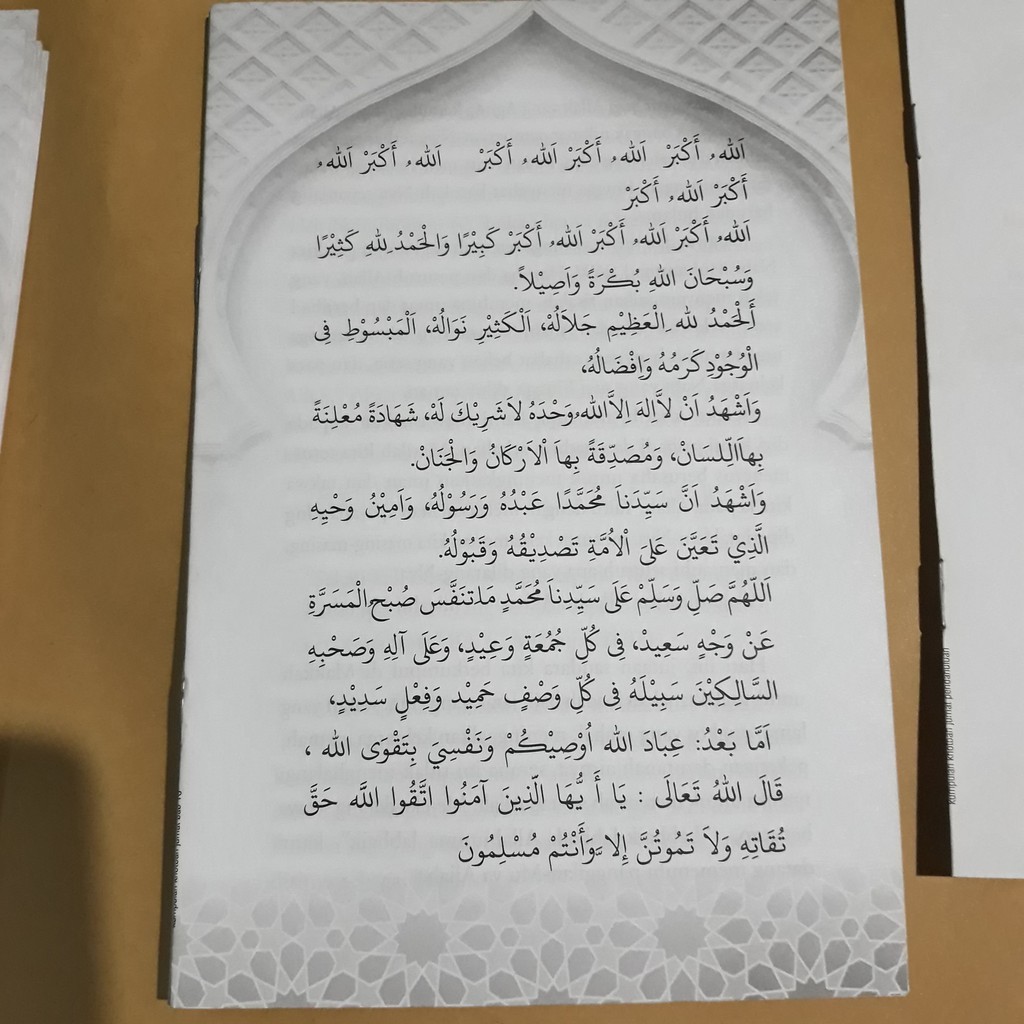 اَللهُ أَكْبَرْ اَللهُ أَكْبَرْ اَللهُ أَكْبَرْ اَللهُ أَكْبَرْ اَللهُ
أَكْبَرْ اَللهُ أَكْبَرْ
اَللهُ أَكْبَرْ اَللهُ أَكْبَرْ اَللهُ أَكْبَرْ كَبِيْرًا وَالْحَمْدُ لِلهِ كَثِيْرًا
وَسُبْحَانَ اللهِ بُكْرَةً وَاَصِيْلاً.
أَلْحَمْدُ لله ِالْعَظِيْمِ جَلاَلُهُ، اَلْكَثِيْرِ نَوَالُهُ، اَلْمَبْسُوْطِ فِى
الْوُجُوْدِ كَرَمُهُ وَاِفْضَالُهُ،
وَاَشْهَدُ اَنْ لاَّاِلهَ اِلاَّاللهُ وَحْدَهُ لاَشَرِيْكَ لَهُ، شَهَادَةً مُعْلِنَةً
بِهاَالِّلسَانْ، وَمُصَدِّقَةً بِهاَ اْلاَرْكَانُ وَالْجَنَانْ.
وَاَشْهَدُ اَنَّ سَيِّدَناَ مُحَمَّدًا عَبْدُهُ وَرَسُوْلُهُ، وَاَمِيْنُ وَحْيِهِ
الَّذِيْ تَعَيَّنَ عَلىَ اْلاُمَّةِ تَصْدِيْقُهُ وَقَبُوْلُهُ.
اَللّهُمَّ صَلِّ وَسَلِّمْ عَلَى سَيِّدِناَ مُحَمَّدٍ مَاتنَفَّسَ صُبْحُ الْمَسَرَّةِ
عَنْ وَجْهٍ سَعِيدْ، فِى كُلِّ جُمُعَةٍ وَعِيْدٍ، وَعَلَى آلِهِ وَصَحْبِهِ
السَّالِكِيْنَ سَبِيْلَهُ فِى كُلِّ وَصْفٍ حَمِيْد وَفِعْلٍ سَدِيْدٍ،
اَمَّا بَعْدُ: عِبَادَ الله اُوْصِيْكُمْ وَنَفْسِيَ بِتَقْوَى الله ،
قَالَ اللهُ تَعَالَى : يَا أَ يُّهَا الَّذِينَ آمَنُوا اتَّقُوا اللَّه حَقَّ
تُقَاتِهِ وَلاَ تَمُوتُنَّ إِلا َّوَأَنْتُمْ مُسْلِمُونَ
kumpulan khotbah jumat